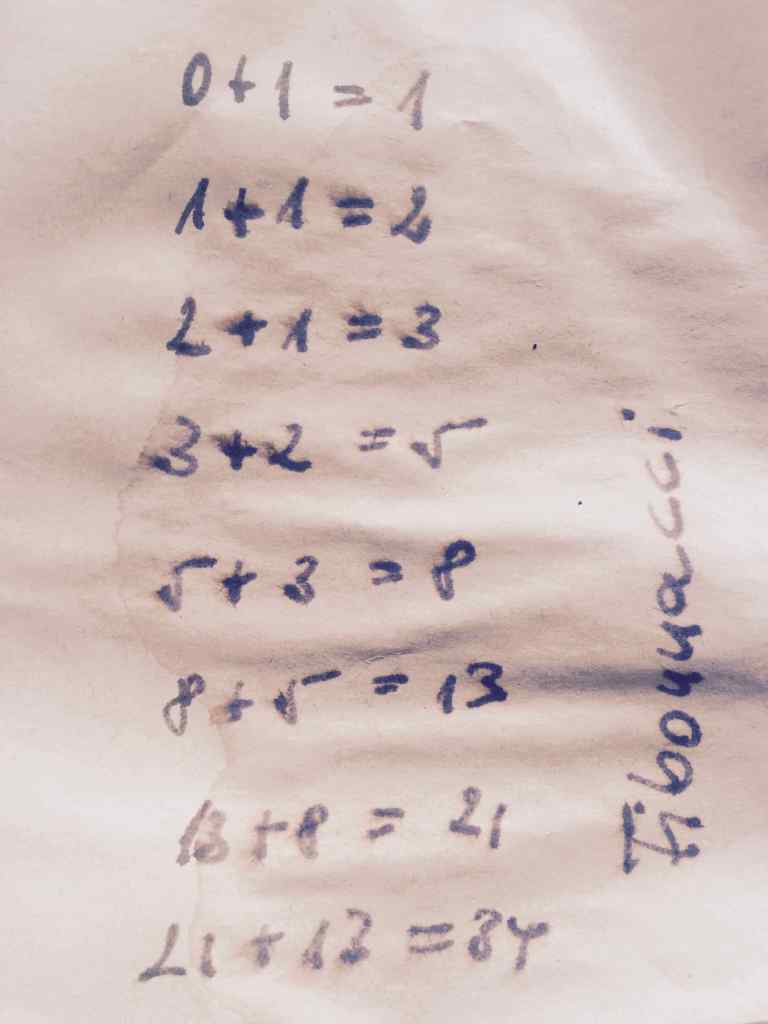 0+1=1
1+1=2
2+1=3
3+2=5
5+3=8
8+5=13
13+8=21
21+13=34
Fibonacci